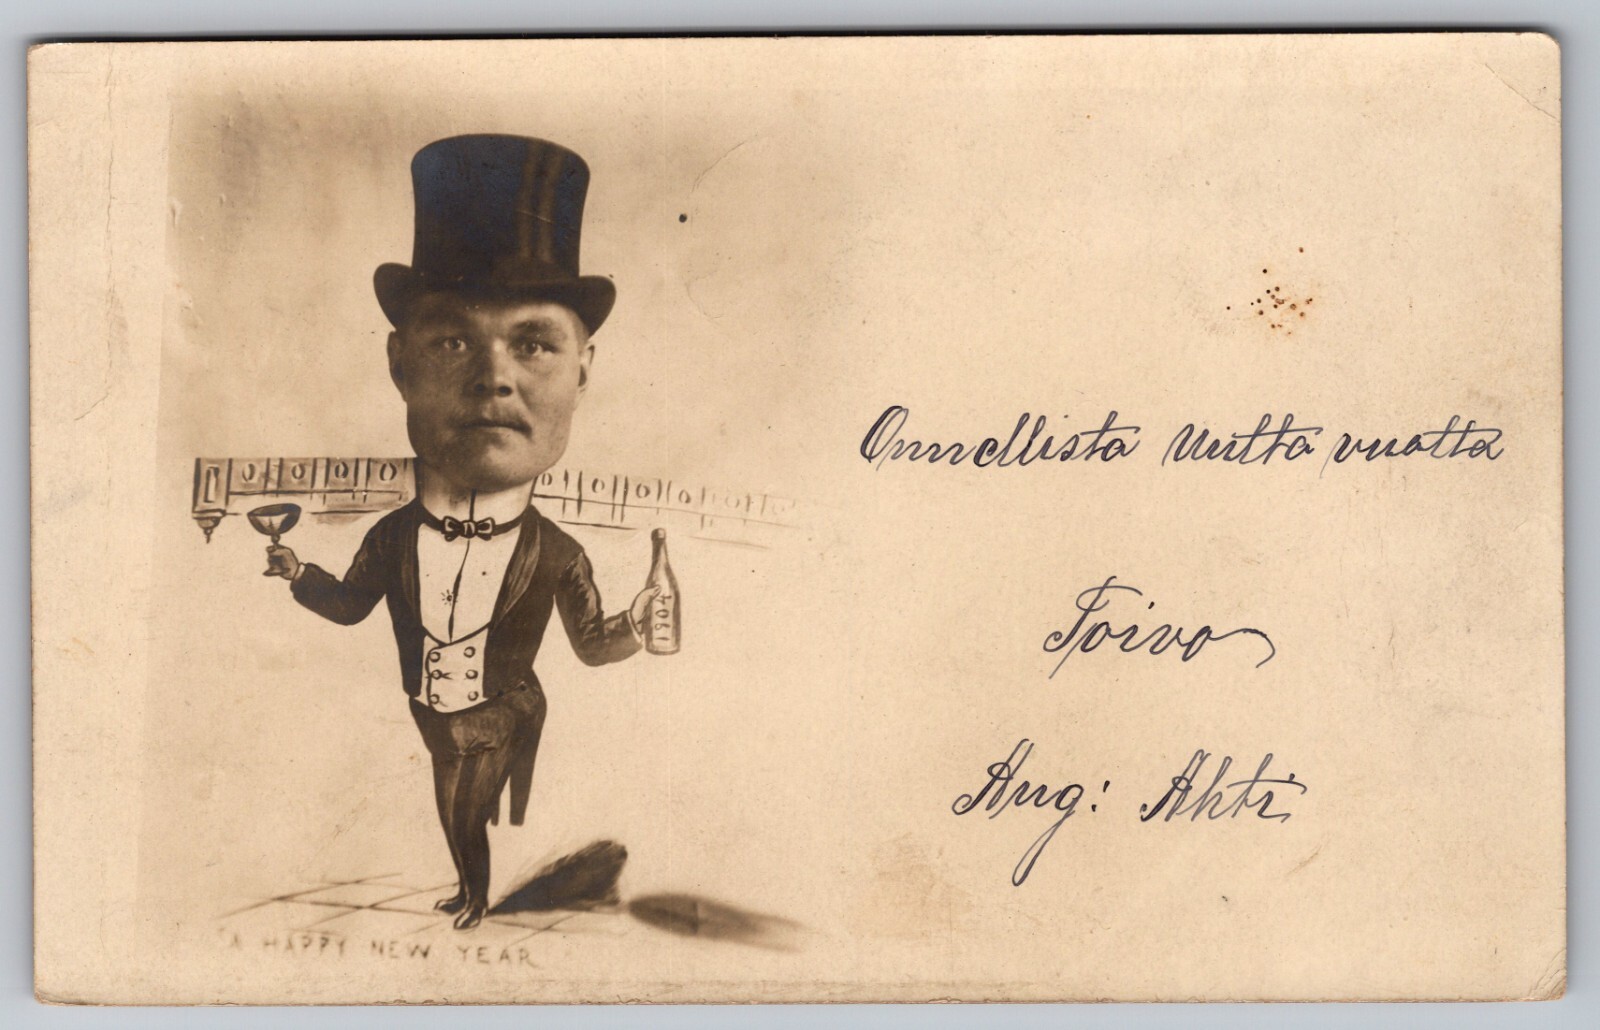 Onnellista Uutta vuotta
Toivo
Aug: Ahti
1904
A HAPPY NEW YEAR